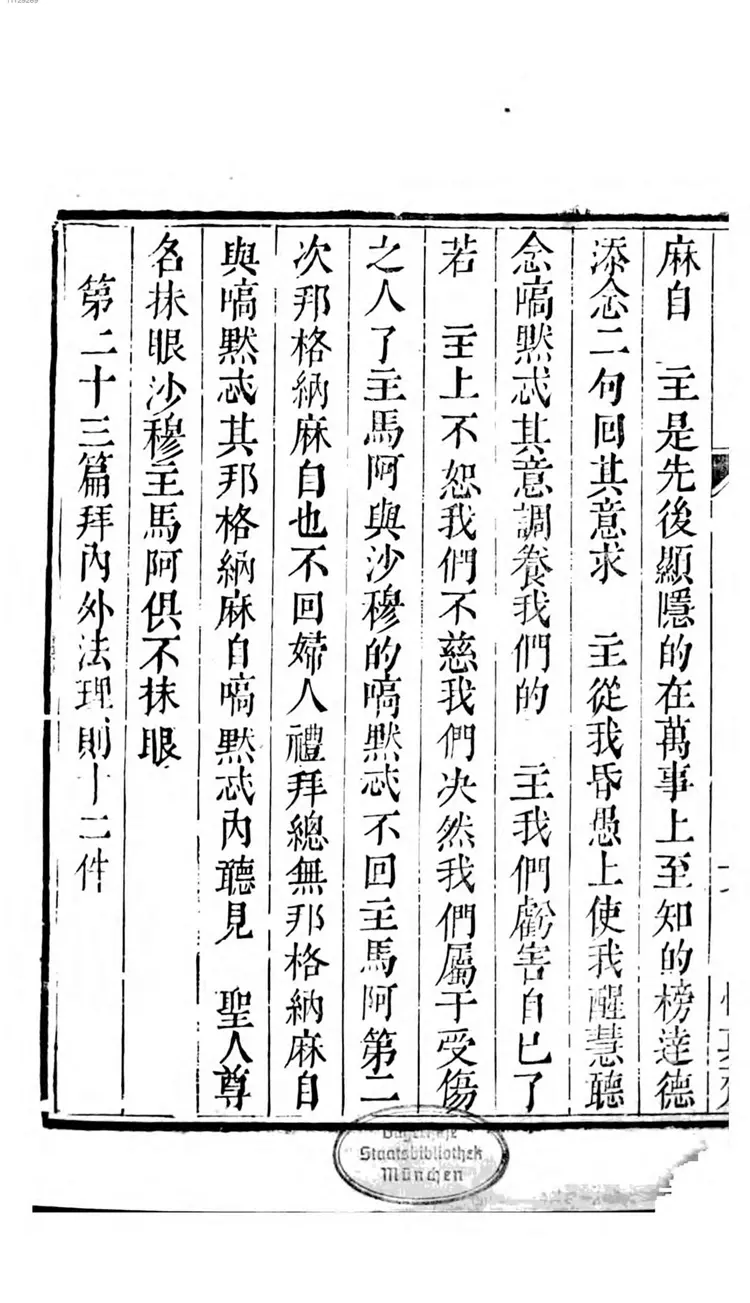 11129269
麻自　主是先後顯隱的在萬事上至知的榜達德
添念二句回其意求　主從我昏愚上使我醒慧聽
念嗃默忒其意調養我們的　主我們虧害自己了
若　主上不恕我們不慈我們决然我們屬于受傷
之人了主馬阿與沙穆的嗃默忒不回主馬阿第二
次邦格納麻自也不回婦人禮拜總無邦格納麻自
與嗃默忒其邦格納麻自嗃默忒内聽見　聖人尊
名抹眼沙穆主馬阿俱不抹眼
第二十三篇拜内外法理則十二件
Bayerische
Staatsbibliothek
München